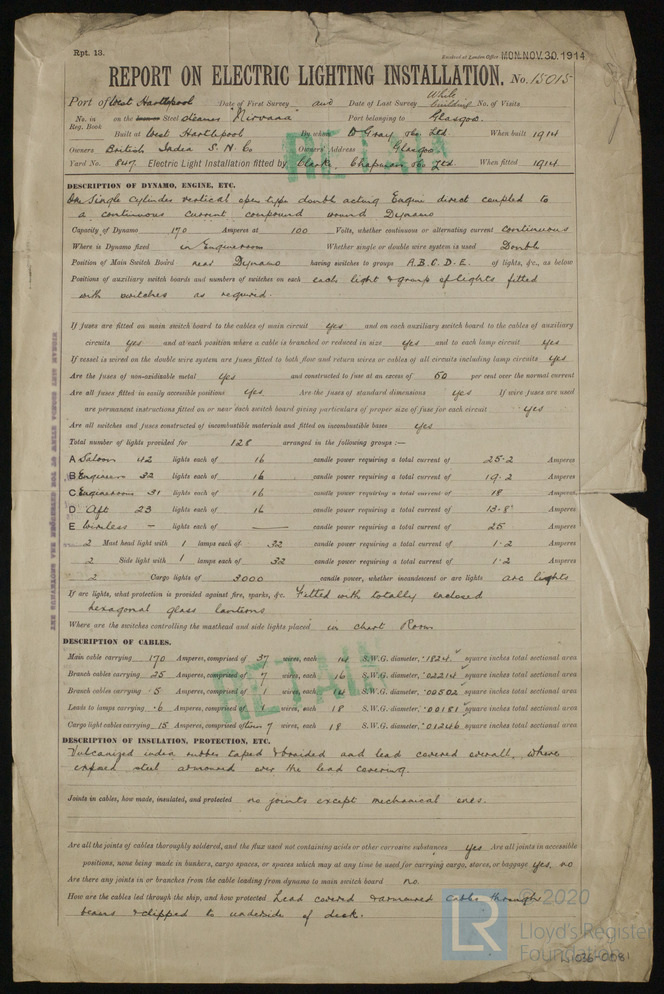 Rpt. 13.
Received at London Office MON. NOV. 30. 1914
REPORT ON ELECTRIC LIGHTING INSTALLATION. No. 15015
Port of West Hartlepool Date of First Survey and Date of Last Survey While building No. of Visits
No. in Reg. Book on the Steel steamer "Nirvana" Port belonging to Glasgow.
Built at West Hartlepool By whom D Gray & Co Ltd When built 1914
Owners British India S. N. Co Owners' Address Glasgow
Yard No. 847 Electric Light Installation fitted by Clarke Chapman & Co Ltd When fitted 1914
DESCRIPTION OF DYNAMO, ENGINE, ETC.
One Single Cylinder vertical open type double acting Engine direct coupled to
a continuous current compound wound Dynamo
Capacity of Dynamo 170 Amperes at 100 Volts, whether continuous or alternating current continuous
Where is Dynamo fixed in Engineroom Whether single or double wire system is used Double
Position of Main Switch Board near Dynamo having switches to groups A. B. C. D. E. of lights, &c., as below
Positions of auxiliary switch boards and numbers of switches on each each light & group of lights fitted
with switches as required.
If fuses are fitted on main switch board to the cables of main circuit yes and on each auxiliary switch board to the cables of auxiliary
circuits yes and at each position where a cable is branched or reduced in size yes and to each lamp circuit yes
If vessel is wired on the double wire system are fuses fitted to both flow and return wires or cables of all circuits including lamp circuits yes
Are the fuses of non-oxidizable metal yes and constructed to fuse at an excess of 60 per cent over the normal current
Are all fuses fitted in easily accessible positions yes Are the fuses of standard dimensions yes If wire fuses are used
are permanent instructions fitted on or near each switch board giving particulars of proper size of fuse for each circuit yes
Are all switches and fuses constructed of incombustible materials and fitted on incombustible bases yes
Total number of lights provided for 128 arranged in the following groups :—
A Saloon 42 lights each of 16 candle power requiring a total current of 25.2 Amperes
B Engineers 32 lights each of 16 candle power requiring a total current of 19.2 Amperes
C Engineroom 31 lights each of 16 candle power requiring a total current of 18 Amperes
D Aft 23 lights each of 16 candle power requiring a total current of 13.8 Amperes
E Wireless – lights each of — candle power requiring a total current of 25 Amperes
2 Mast head light with 1 lamps each of 32 candle power requiring a total current of 1.2 Amperes
2 Side light with 1 lamps each of 32 candle power requiring a total current of 1.2 Amperes
2 Cargo lights of 3000 candle power, whether incandescent or arc lights arc lights
If arc lights, what protection is provided against fire, sparks, &c. Fitted with totally enclosed
hexagonal glass lanterns
Where are the switches controlling the masthead and side lights placed in Chart Room
DESCRIPTION OF CABLES.
Main cable carrying 170 Amperes, comprised of 37 wires, each 14 S.W.G. diameter, .1824 square inches total sectional area
Branch cables carrying 25 Amperes, comprised of 7 wires, each 16 S.W.G. diameter, .02214 square inches total sectional area
Branch cables carrying 5 Amperes, comprised of 1 wires, each 14 S.W.G. diameter, .00502 square inches total sectional area
Leads to lamps carrying .6 Amperes, comprised of 1 wires, each 18 S.W.G. diameter, .00181 square inches total sectional area
Cargo light cables carrying 15 Amperes, comprised of 7 wires, each 18 S.W.G. diameter, .01246 square inches total sectional area
DESCRIPTION OF INSULATION, PROTECTION, ETC.
Vulcanized india rubber taped & braided and lead covered overall, where
exposed steel armoured over the lead covering.
Joints in cables, how made, insulated, and protected no joints except mechanical ones.
Are all the joints of cables thoroughly soldered, and the flux used not containing acids or other corrosive substances yes Are all joints in accessible
positions, none being made in bunkers, cargo spaces, or spaces which may at any time be used for carrying cargo, stores, or baggage yes, no
Are there any joints in or branches from the cable leading from dynamo to main switch board no.
How are the cables led through the ship, and how protected Lead covered & armoured cable through
beams & clipped to underside of deck.
RETAIN
RETAIN
© 2020
Lloyd's Register
Foundation
LR
W1036-0081